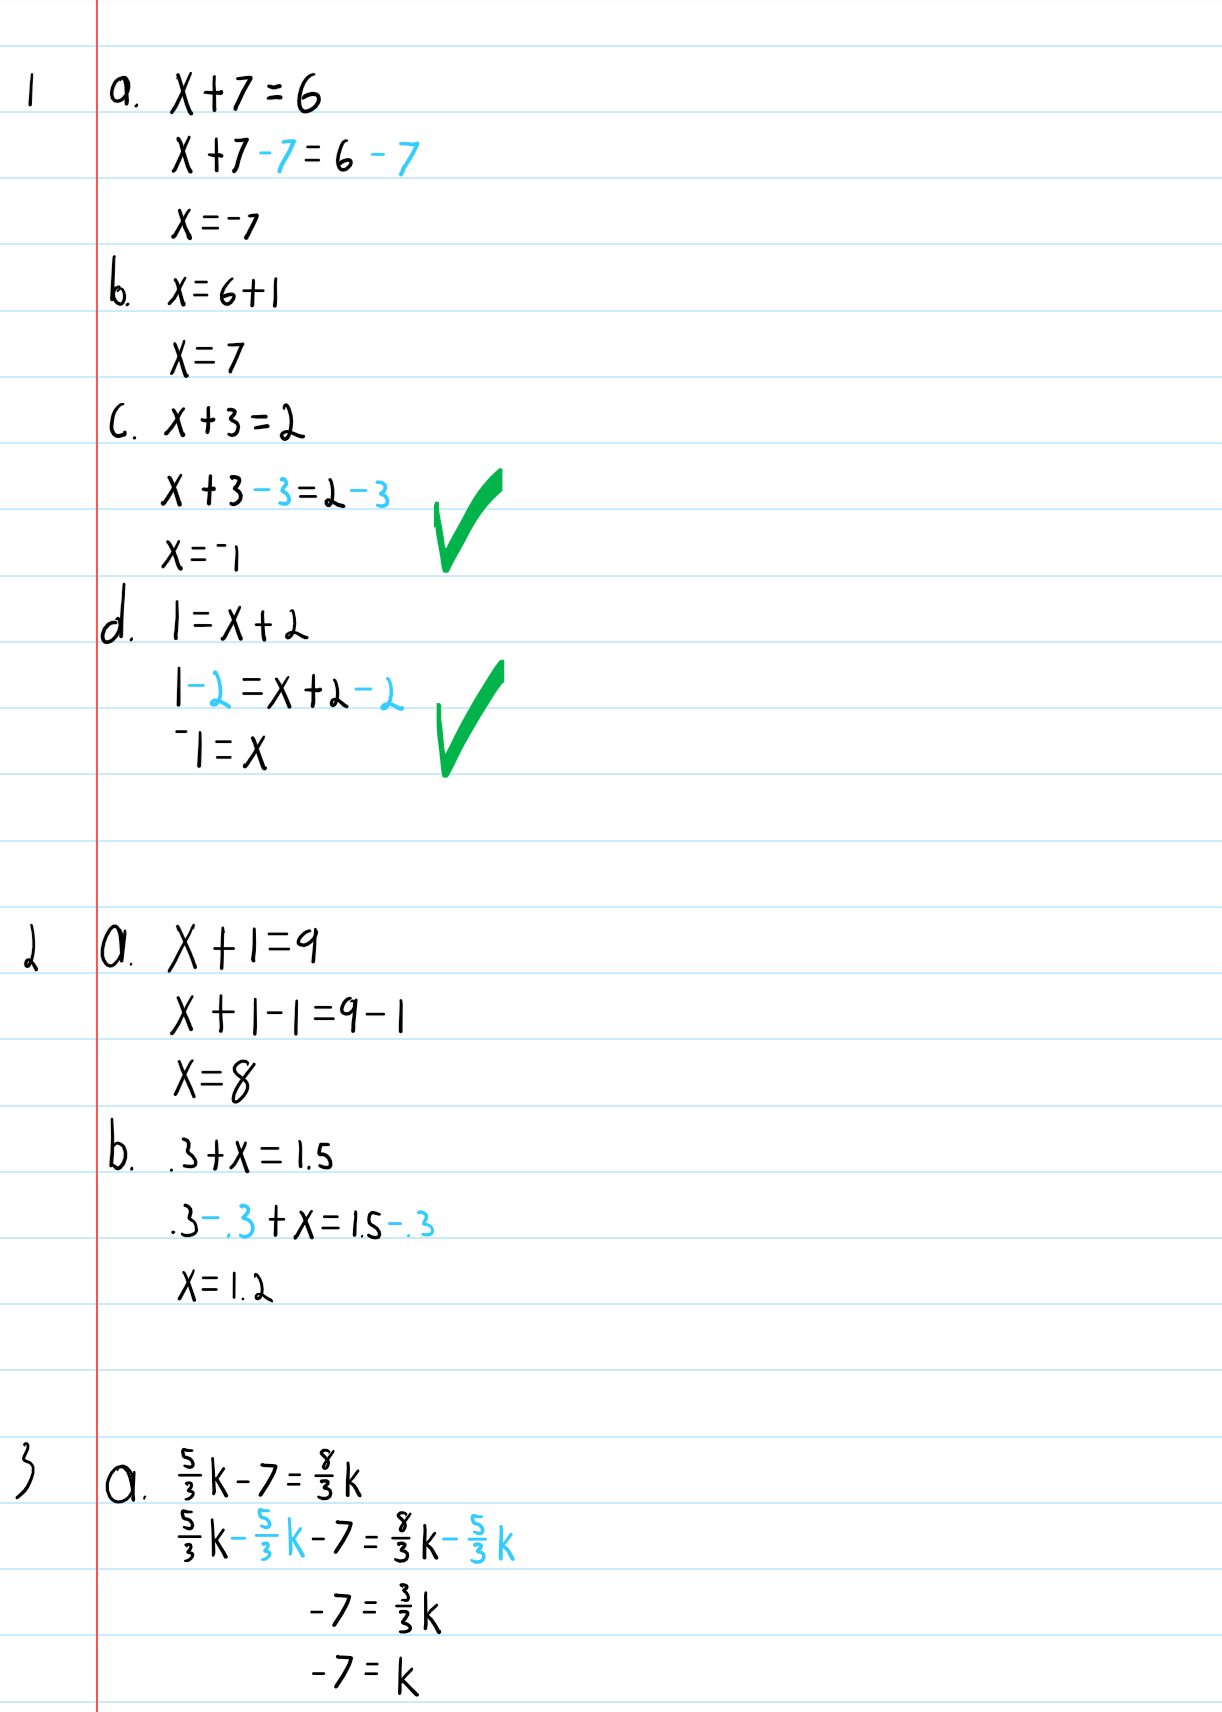 1 a. x+7=6
x+7-7=6-7
x=-7
b. x=6+1
x=7
c. x+3=2
x+3-3=2-3
x=-1
d. 1=x+2
1-2=x+2-2
-1=x
2 a. x+1=9
x+1-1=9-1
x=8
b. .3+x=1.5
.3-.3+x=1.5-.3
x=1.2
3 a. 5/3 k-7=8/3 k
5/3 k-5/3 k-7=8/3 k-5/3 k
-7=3/3 k
-7=k